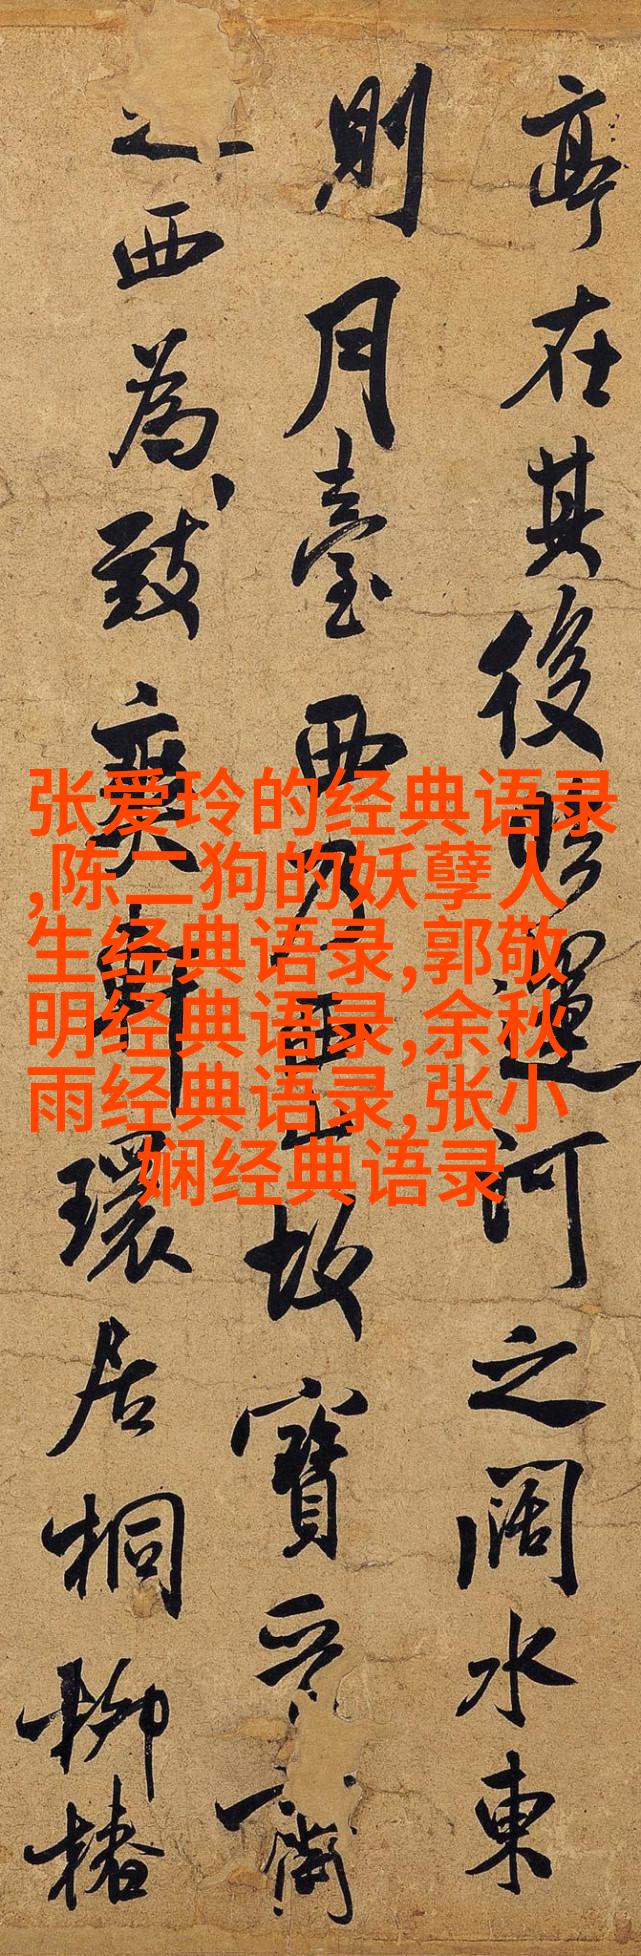 亭在其後臨運河之闊水東
則月臺西乃西山故寶晉齋
之西為致爽軒環居桐柳椿
张爱玲的经典语录
,陈二狗的妖孽人
生经典语录,郭敬
明经典语录,余秋
雨经典语录,张小
娴经典语录